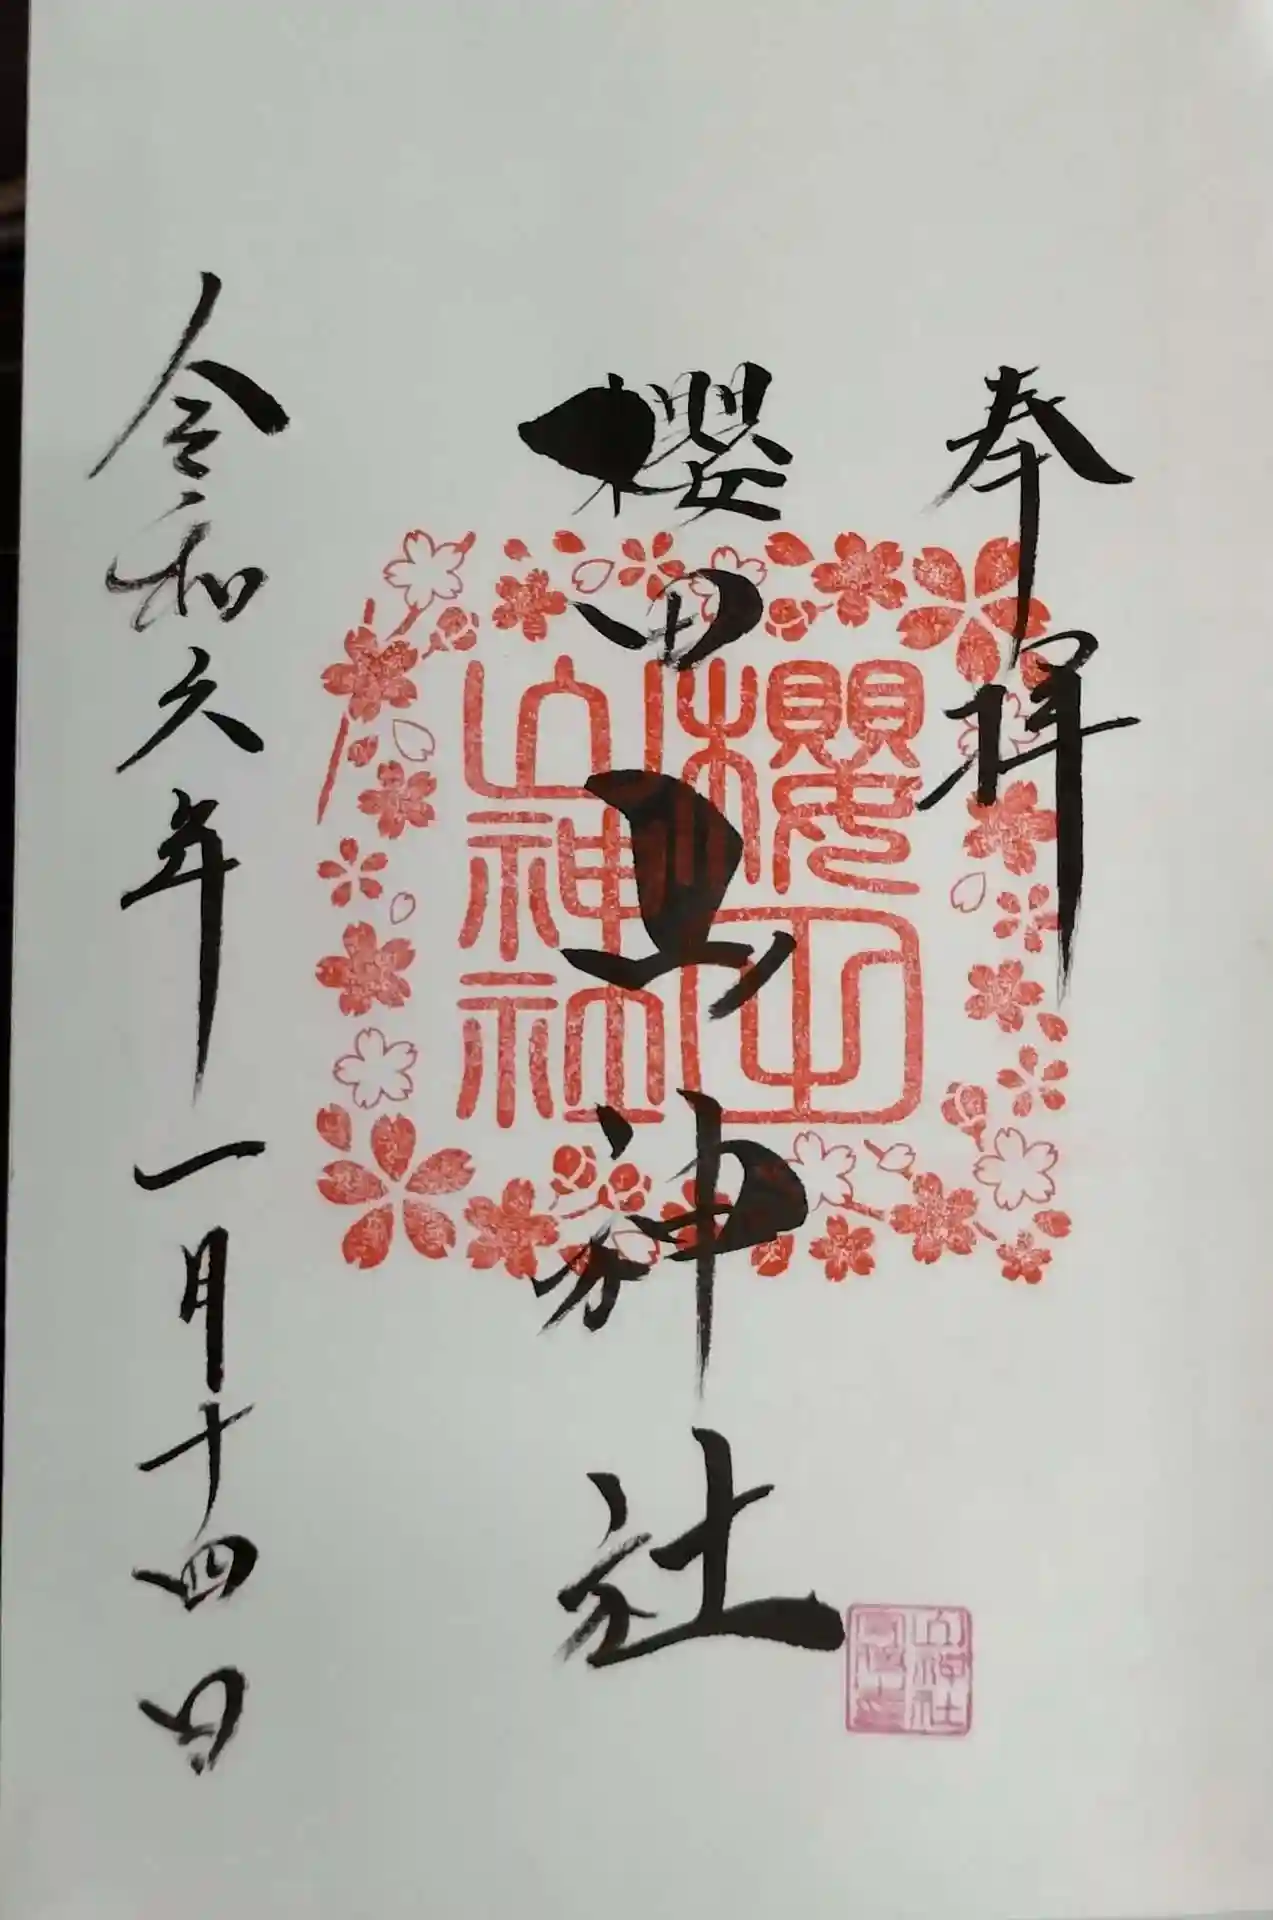 奉拝
櫻田山神社
櫻田
山神社
山神社
令和六年一月十四日